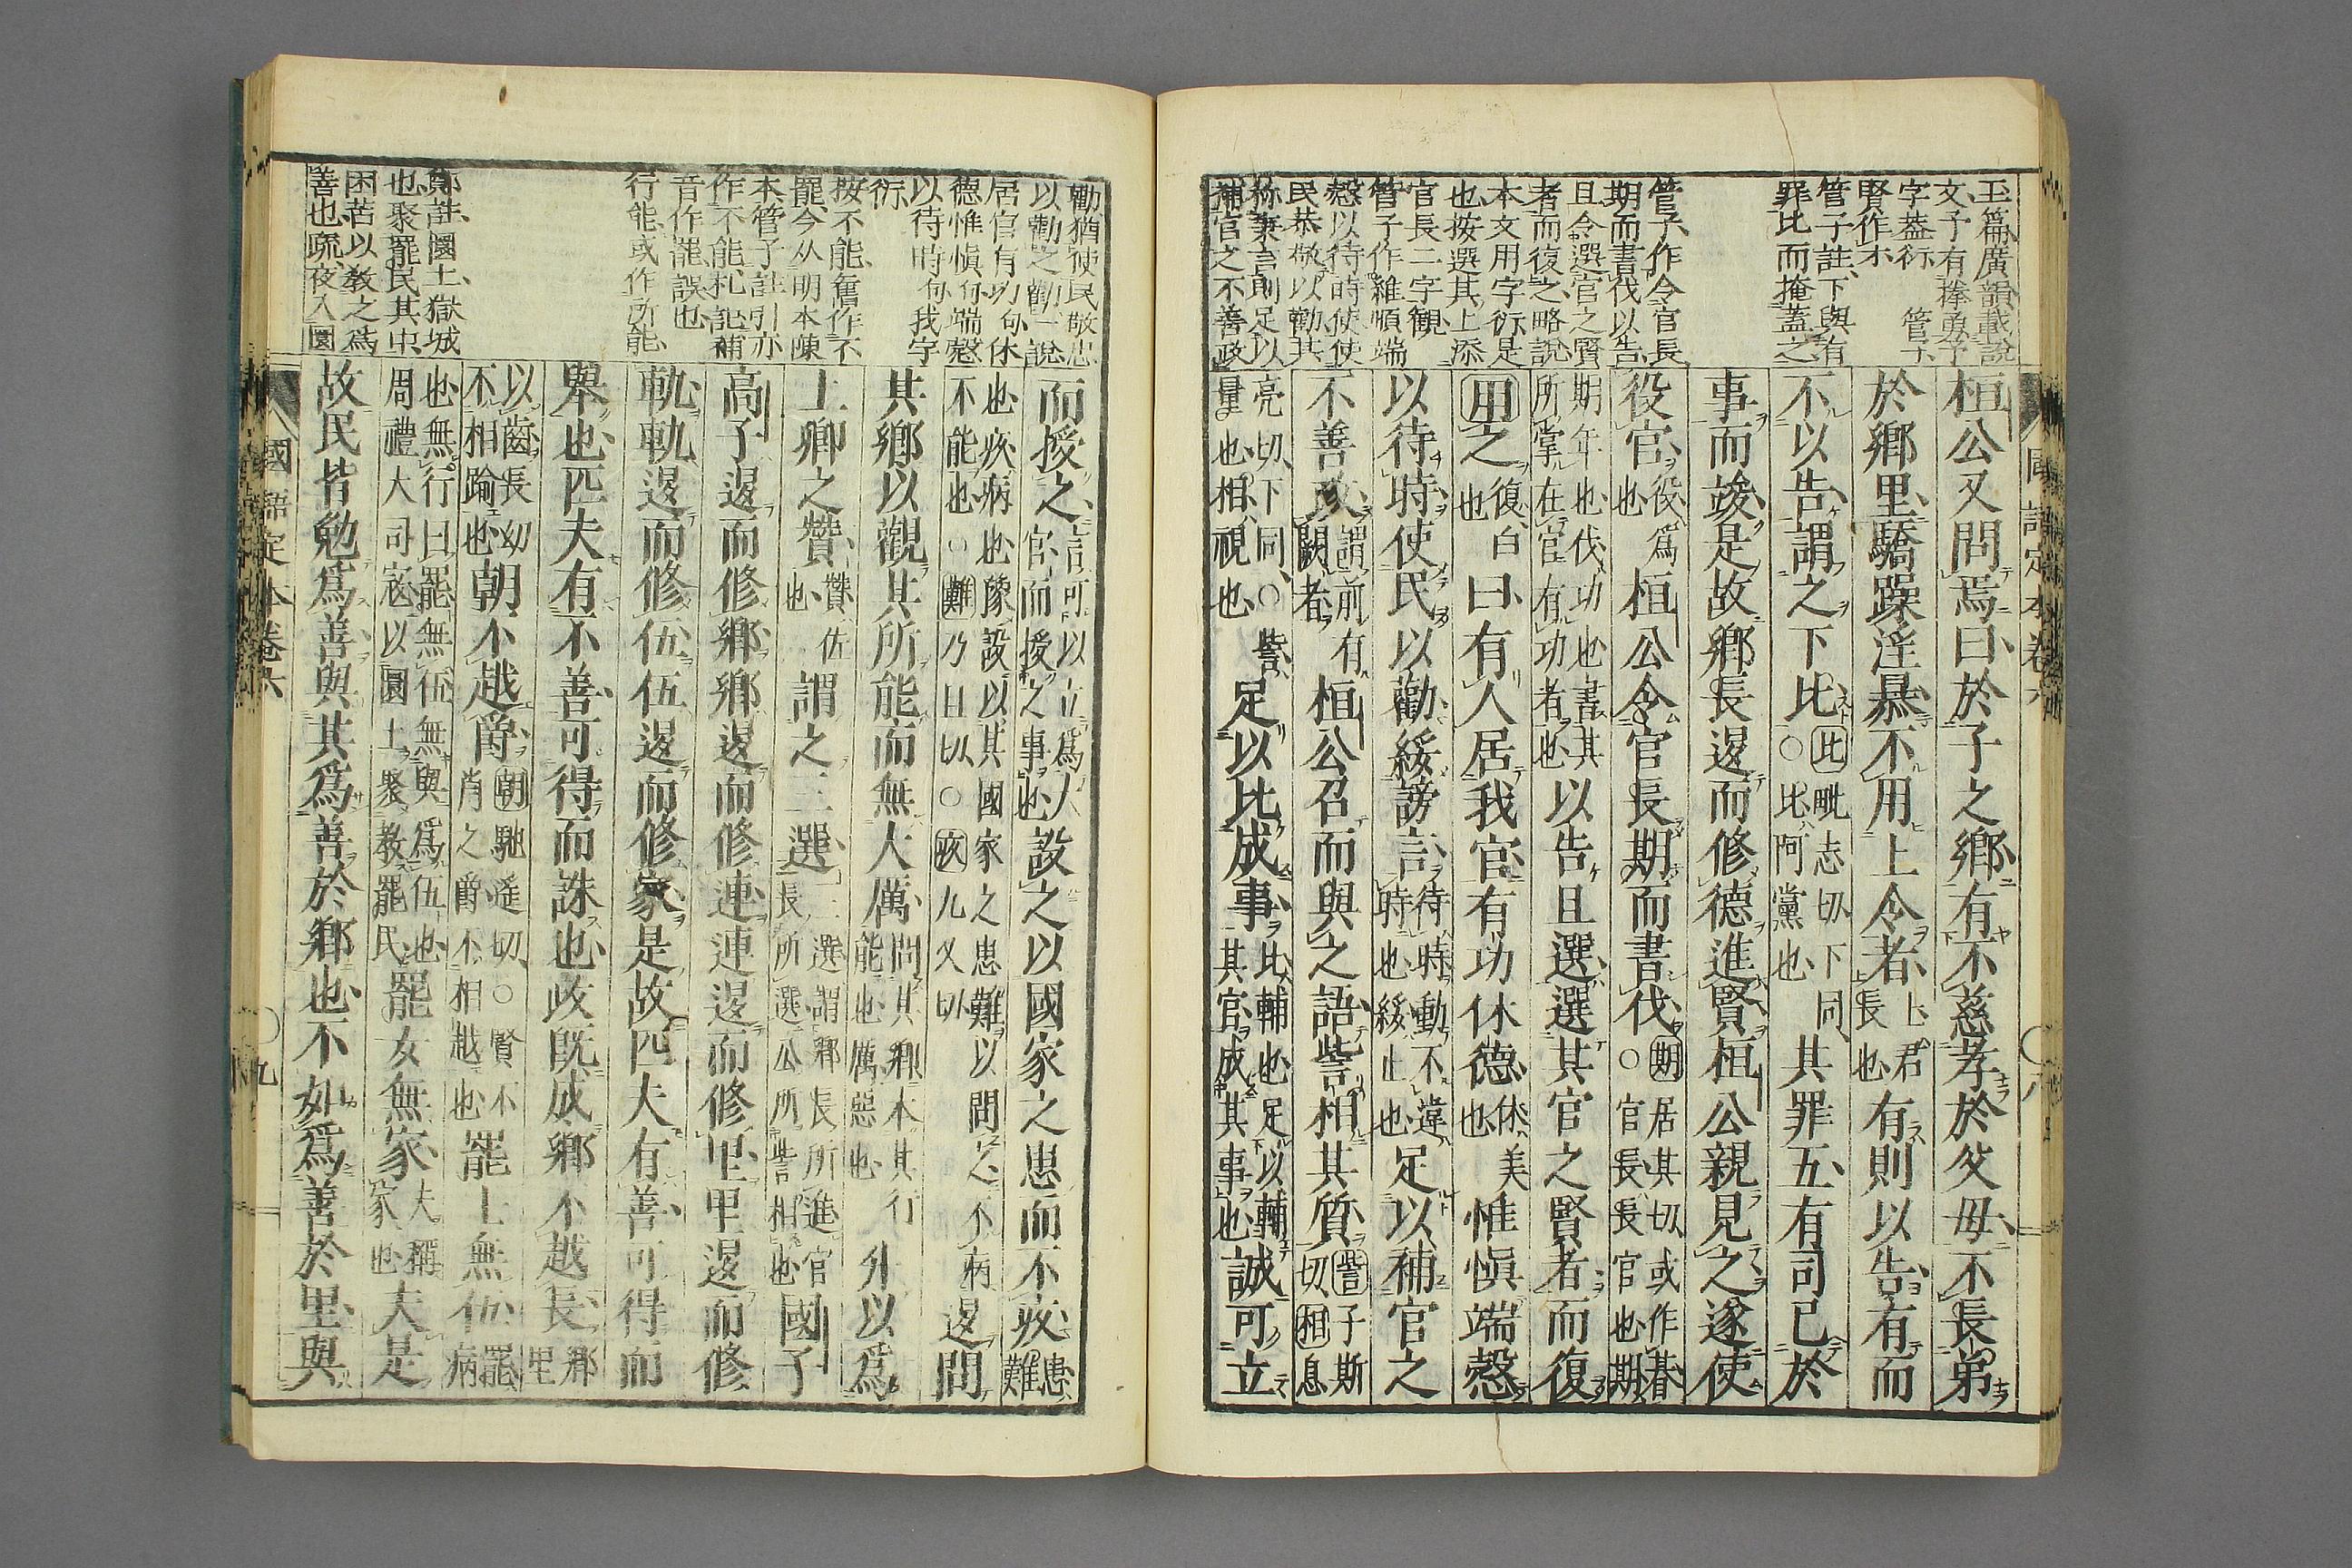 玉篇廣韻載說
文予有拳勇予
字葢衍　管子
賢作不
管子註下與有
罪比而掩蓋之
管子作令官長
期而書伐以告
且令選官之賢
者而復之略說
本文用字衍是
也按選其上添
官長二字觀
管子作維順端
愨以待時使使
民恭敬以勸其
稱秉言則足以
補官之不善政
桓公又問焉曰於子之鄉有不慈孝於父母不長弟
於鄉里驕躁淫暴不用上令者上君長也有則以告有而
不以告謂之下比比毗志切下同○比阿黨也其罪五有司已於
事而竣是故鄉長退而修德進賢桓公親見之遂使
役官役爲官也桓公令官長期而書伐期居其切或作朞○官長長官也期
期年也伐功也書其所掌在官有功者也以告且選選其官之賢者而復
用之復白也曰有人居我官有功休德休美也惟愼端愨
以待時使民以勸綏謗言待時動不違時也綏止也足以補官之
不善政謂前有闕者桓公召而與之語訾相其質訾子斯切相息
亮切下同○訾量也相視也足以比成事比輔也足以輔其官成其事也誠可立
國語定本卷六　○八
勸猶使民敬忠
以勸之勸一說
居官有功句休
德惟愼句端愨
以待時句我字
衍
按不能舊作不
罷今从明本陳
本管子註引亦
作不能札記補
音作罷誤也
行能或作所能
鄭註圜土獄城
也聚罷民其中
困苦以教之爲
善也疏夜入圜
而授之言可以立爲大官而授之事也設之以國家之患而不疚患難
也疚病也豫設以其國家之患難以問之不病不能也○難乃旦切○疚九又切退問
其鄉以觀其所能而無大厲問其鄉本其行能也厲惡也升以爲
上卿之贊贊佐也謂之三選三選謂鄉長所進官長所選公所訾相也國子
高子退而修鄉鄉退而修連連退而修里里退而修
軌軌退而修伍伍退而修家是故匹夫有善可得而
舉也匹夫有不善可得而誅也政旣成鄉不越長鄉里
以齒長幼不相踰也朝不越爵朝馳遥切○賢不肖之爵不相越也罷士無伍罷病
也無行曰罷無伍無與爲伍也周禮大司寇以圜土聚教罷民罷女無家夫稱家也夫是
故民皆勉爲善與其爲善於鄉也不如爲善於里與
國語定本卷六　○九